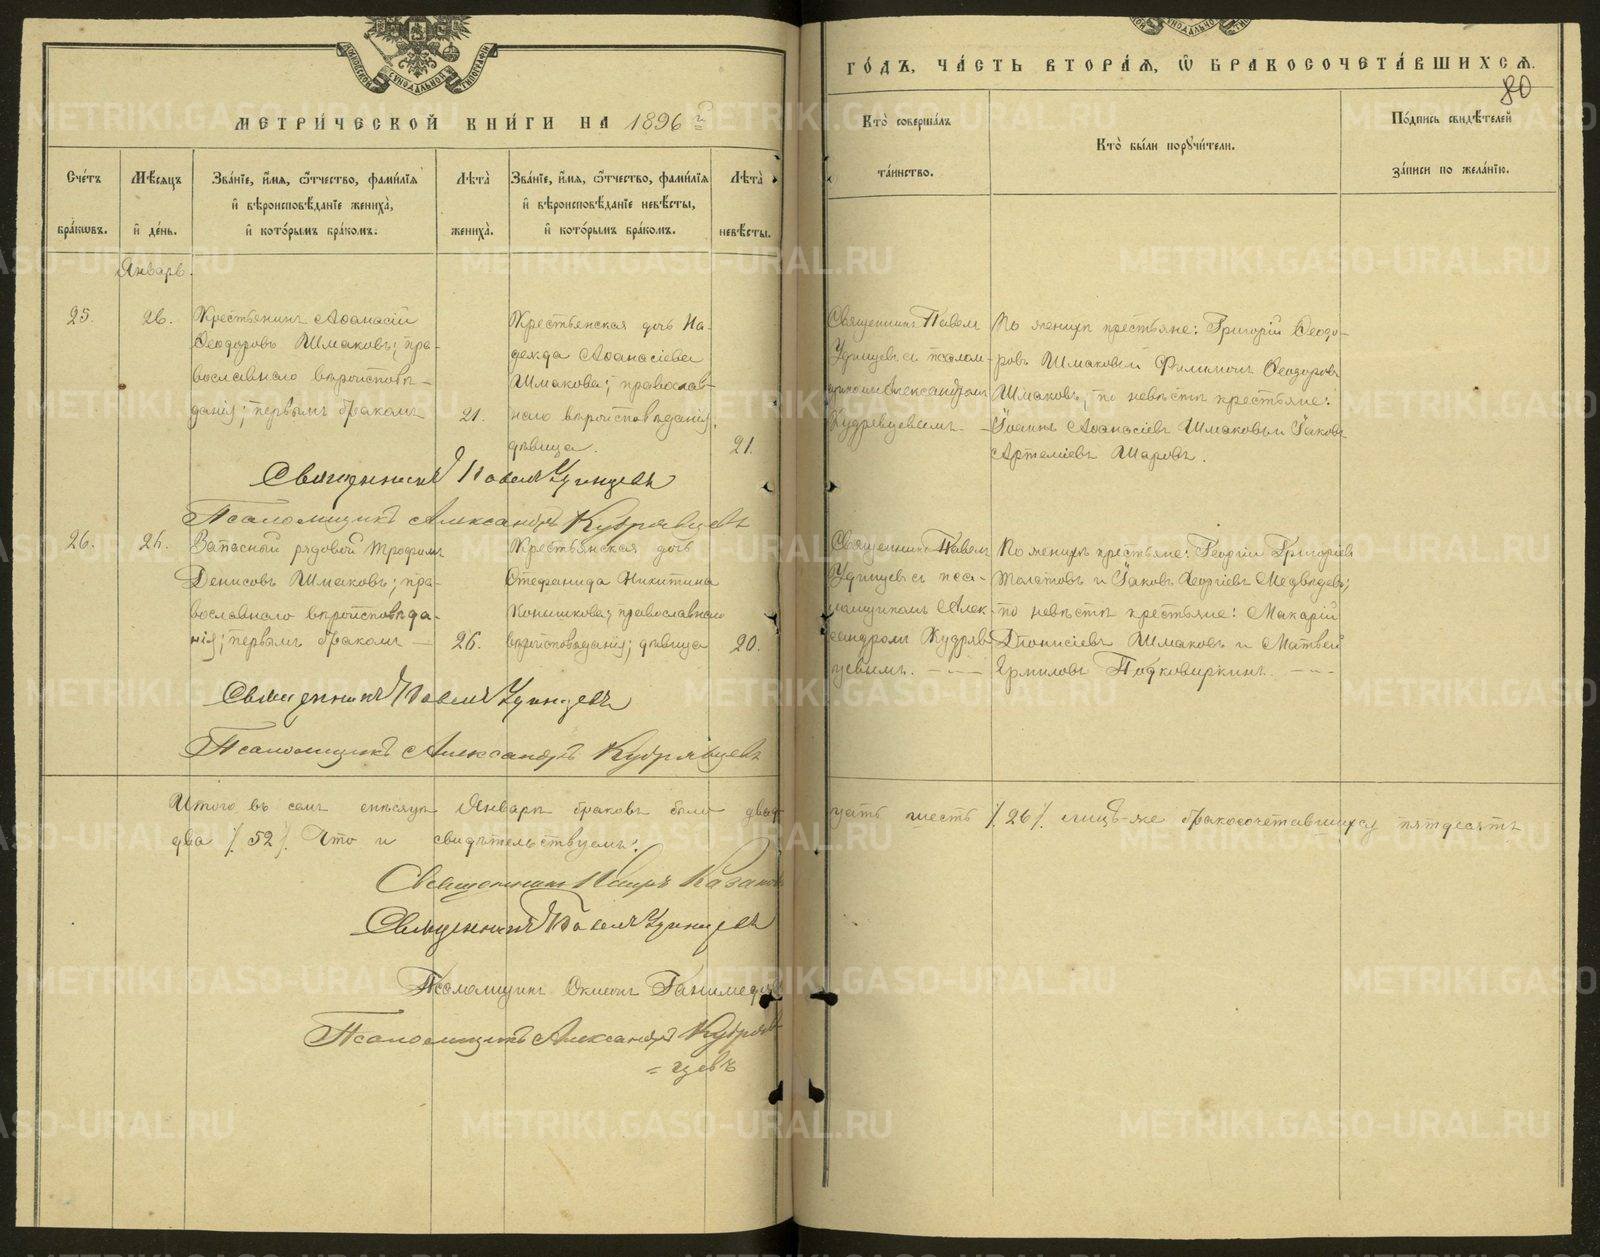 МЕТРИ́ЧЕСКОЙ КНИ́ГИ НА 1896 й
ГО́ДЪ, ЧА́СТЬ ВТОРА́Я, Ѡ БРАКОСОЧЕТА́ВШИХСѦ.
80
Сче́тъ бра́кѡвъ.
Мѣ́сяцъ и де́нь.
Зва́нїе, и́мя, ѻ́тчество, фами́лїя
и вѣроисповѣ́данїе жениха̀,
и кото́рымъ бра́комъ.
Лѣта̀ жениха̀.
Зва́нїе, и́мя, ѻ́тчество, фами́лїя
и вѣроисповѣ́данїе невѣ́сты,
и кото́рымъ бра́комъ.
Лѣта̀ невѣ́сты.
Кто̀ соверша́лъ
та́инство.
Кто̀ бы́ли порꙋчи́тели.
По́дпись свидѣ́телей
за́писи по жела́нїю.
Январь.
25.
26.
Крестьянинъ Аѳанасій
Ѳеодоровъ Шмаковъ; пра-
вославнаго вѣроисповѣ-
данія; первымъ бракомъ
21.
Крестьянская дочь На-
дежда Аѳанасіева
Шмакова; православ-
наго вѣроисповѣданія,
дѣвица.
21.
Священникъ Павелъ
Удинцевъ съ псалом-
щикомъ Александромъ
Кудрявцевымъ. -
По женихѣ крестьяне: Григорій Ѳеодо-
ровъ Шмаковъ и Филимонъ Ѳеодоровъ
Шмаковъ; по невѣстѣ крестьяне:
Іоаннъ Аѳанасіевъ Шмаковъ и Іаковъ
Артеміевъ Шаровъ.
Священникъ Павелъ Удинцевъ
Псаломщикъ Александръ Кудрявцевъ
26.
26.
Запасный рядовой Трофимъ
Денисовъ Шмаковъ; пра-
вославнаго вѣроисповѣда-
нія; первымъ бракомъ —
26.
Крестьянская дочь
Стефанида Никитина
Конишкова; православнаго
вѣроисповѣданія; дѣвица
20.
Священникъ Павелъ
Удинцевъ съ пса-
ломщикомъ Алек-
сандромъ Кудряв-
цевымъ. - - -
По женихѣ крестьяне: Георгій Григоріевъ
Долатовъ и Іаковъ Георгіевъ Медвѣдевъ;
по невѣстѣ крестьяне: Макарій
Діонисіевъ Шмаковъ и Матвей
Ермиловъ Подковыркинъ. - - -
Священникъ Павелъ Удинцевъ
Псаломщикъ Александръ Кудрявцевъ
Итого въ семъ мѣсяцѣ Январѣ браковъ было двад-
цать шесть /.26/. лицъ-же бракосочетавшихся пятдесятъ
два /.52/. Что и свидѣтельствуемъ:
Священникъ Казаковъ
Священникъ Павелъ Удинцевъ
Псаломщикъ
Псаломщикъ Александръ Кудряв-
= цевъ
METRIKI.GASO-URAL.RU